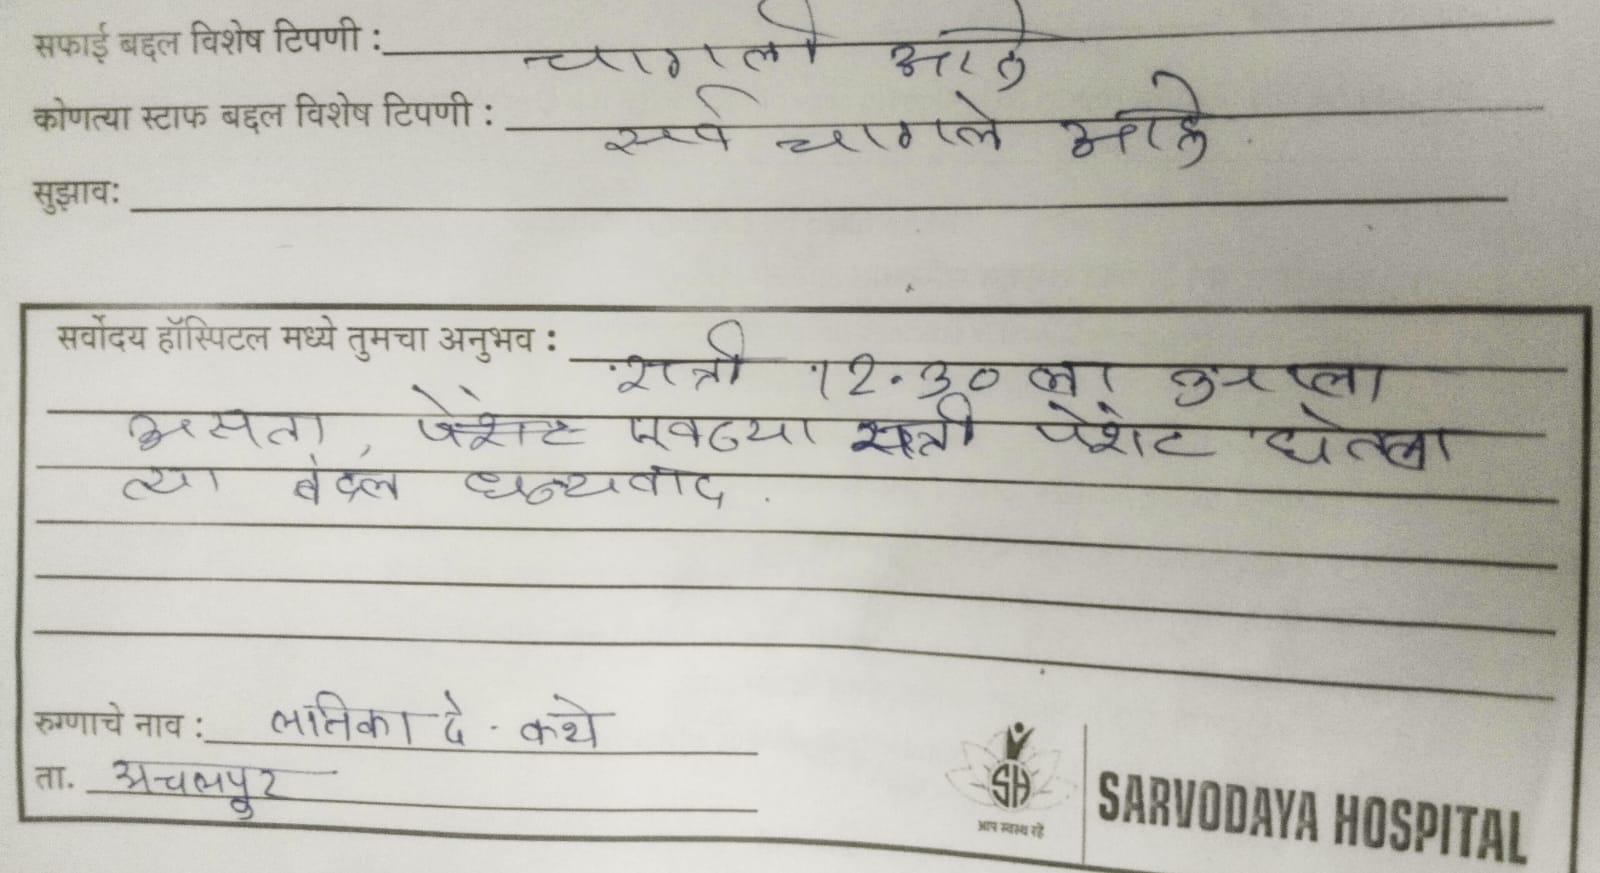 सफाई बद्दल विशेष टिपणी : चागली आहे
कोणत्या स्टाफ बद्दल विशेष टिपणी : सर्व चागले आहे.
सुझाव:
सर्वोदय हॉस्पिटल मध्ये तुमचा अनुभव : रात्री 12.30 ला
असता, पेशंट एवढ्या रात्री पेशंट घेतला
त्या बद्दल धन्यवाद.
रुग्णाचे नाव : लतिका दे. कथे
ता. अचलपुर
SH
आप स्वस्थ रहें
SARVODAYA HOSPITAL